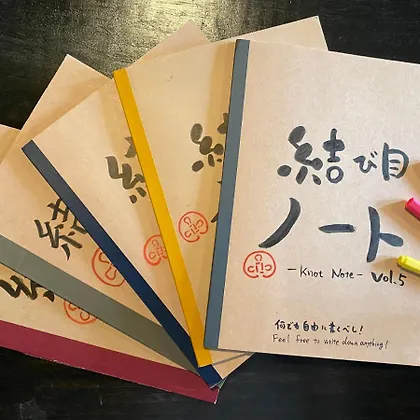 結び目
ノート
-Knot Note- vol.5
何でも自由に書くべし!
Feel free to write down anything!
結